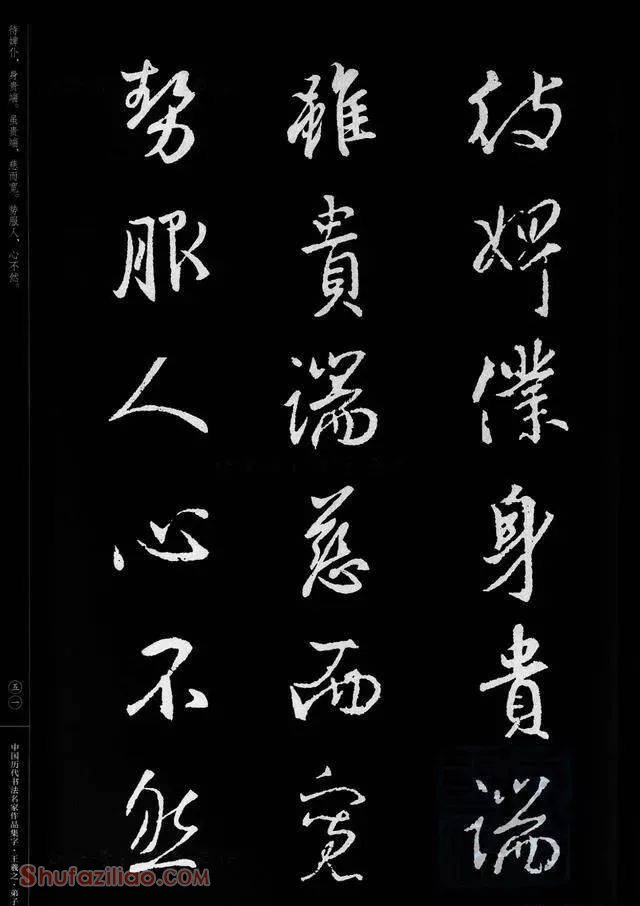 待婢僕身貴端
雖貴端慈而寬
勢服人心不然
待婢仆，身贵端。虽贵端，慈而宽。势服人，心不然。
五一
中国历代书法名家作品集字·王羲之·弟子
Shufaziliao.com